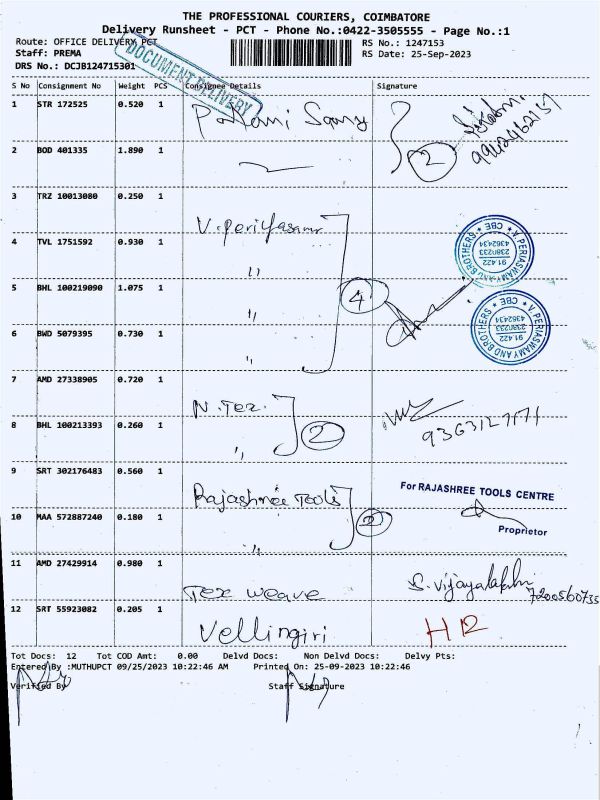 THE PROFESSIONAL COURIERS, COIMBATORE
Delivery Runsheet - PCT - Phone No.:0422-3505555 - Page No.:1
Route: OFFICE DELIVERY PCT RS No.: 1247153
Staff: PREMA RS Date: 25-Sep-2023
DRS No.: DCJB124715301
DOCUMENT DELIVERY
S No Consignment No Weight PCS Consignee Details Signature
1 STR 172525 0.520 1 Palani Samy
2 9942462157
2 BOD 401335 1.890 1
3 TRZ 10013080 0.250 1 V. Periyasamy
4 TVL 1751592 0.930 1 "
V. PERIASWAMY AND BROTHERS * CBE *
91.422
2380233
4362434
5 BHL 100219090 1.075 1 " 4
V. PERIASWAMY AND BROTHERS * CBE *
91.422
2380233
4362434
6 BWD 5079395 0.730 1 "
7 AMD 27338905 0.720 1 N. Tex.
8 BHL 100213393 0.260 1 " 2
9 SRT 302176483 0.560 1 Rajashree Tools
For RAJASHREE TOOLS CENTRE
10 MAA 572887240 0.180 1 " 2
Proprietor
11 AMD 27429914 0.980 1 Tex weave S. Vijayalakshmi
7200560735
12 SRT 55923082 0.205 1 Vellingiri
Tot Docs: 12 Tot COD Amt: 0.00 Delvd Docs: Non Delvd Docs: Delvy Pts:
Entered By :MUTHUPCT 09/25/2023 10:22:46 AM Printed On: 25-09-2023 10:22:46
Verified By Staff Signature